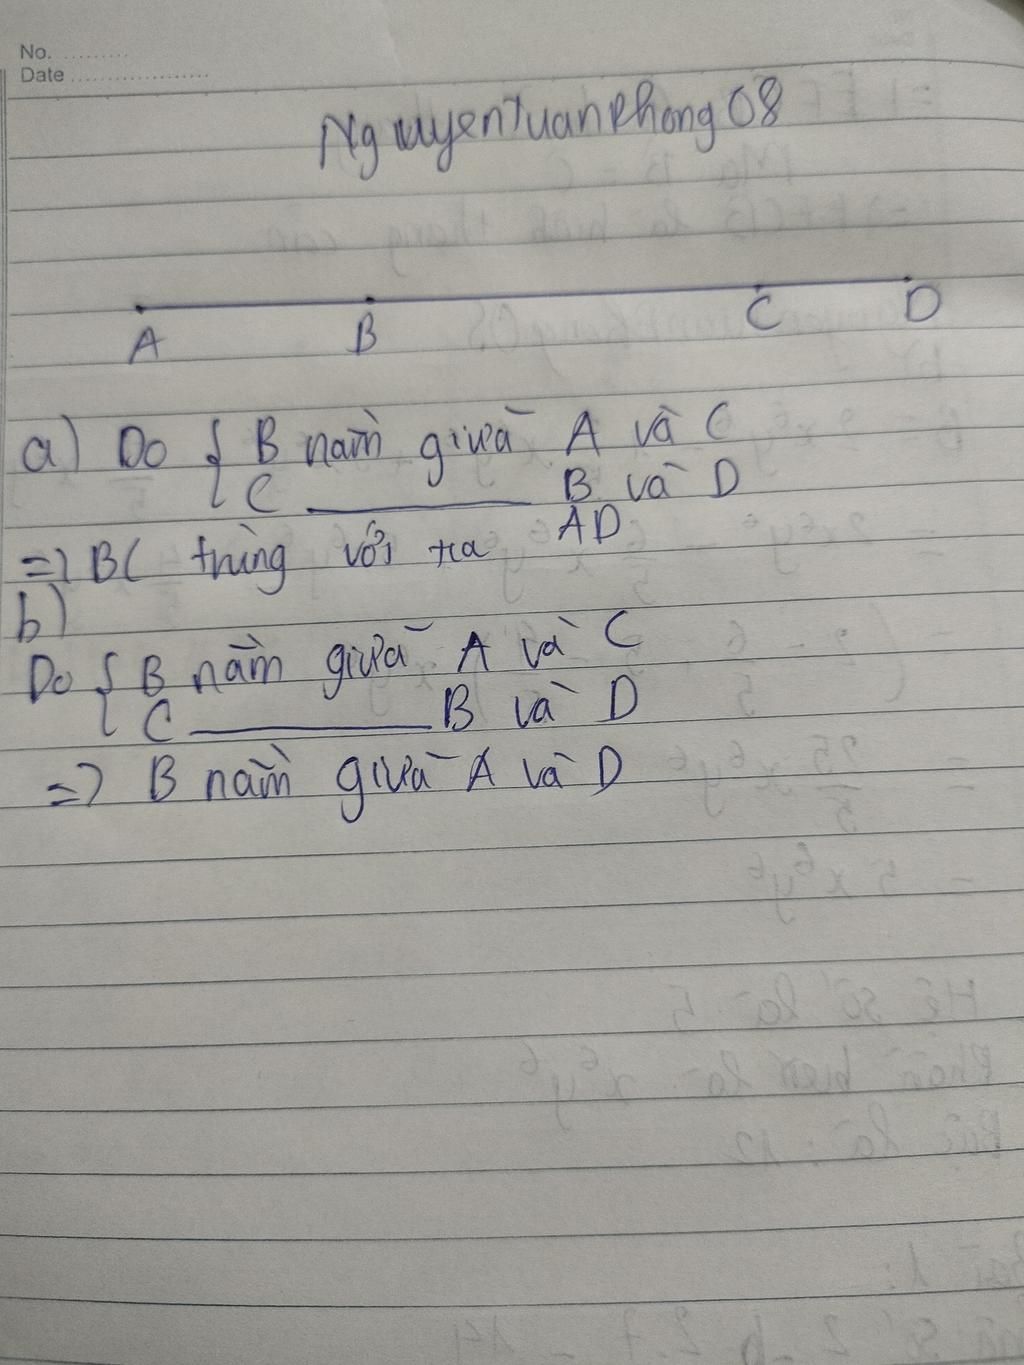 No. ..........
Date ....................
NguyenTuanPhong08
A B C D
a) Do { B nằm giữa A và C
C ________ B và D
=> BC trùng với tia AD
b)
Do { B nằm giữa A và C
C ________ B và D
=> B nằm giữa A và D